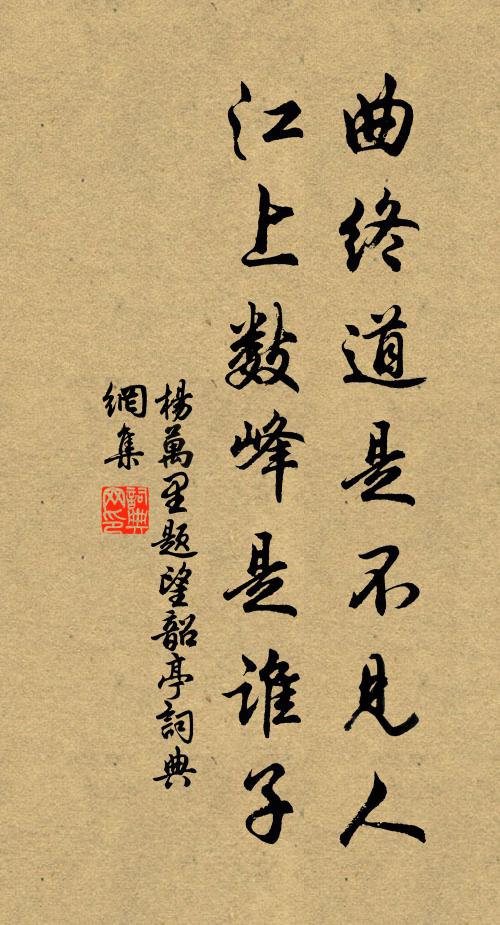 曲终道是不见人
江上数峰是谁子
楊萬里题望韶亭詞典
網集
詞典
网印